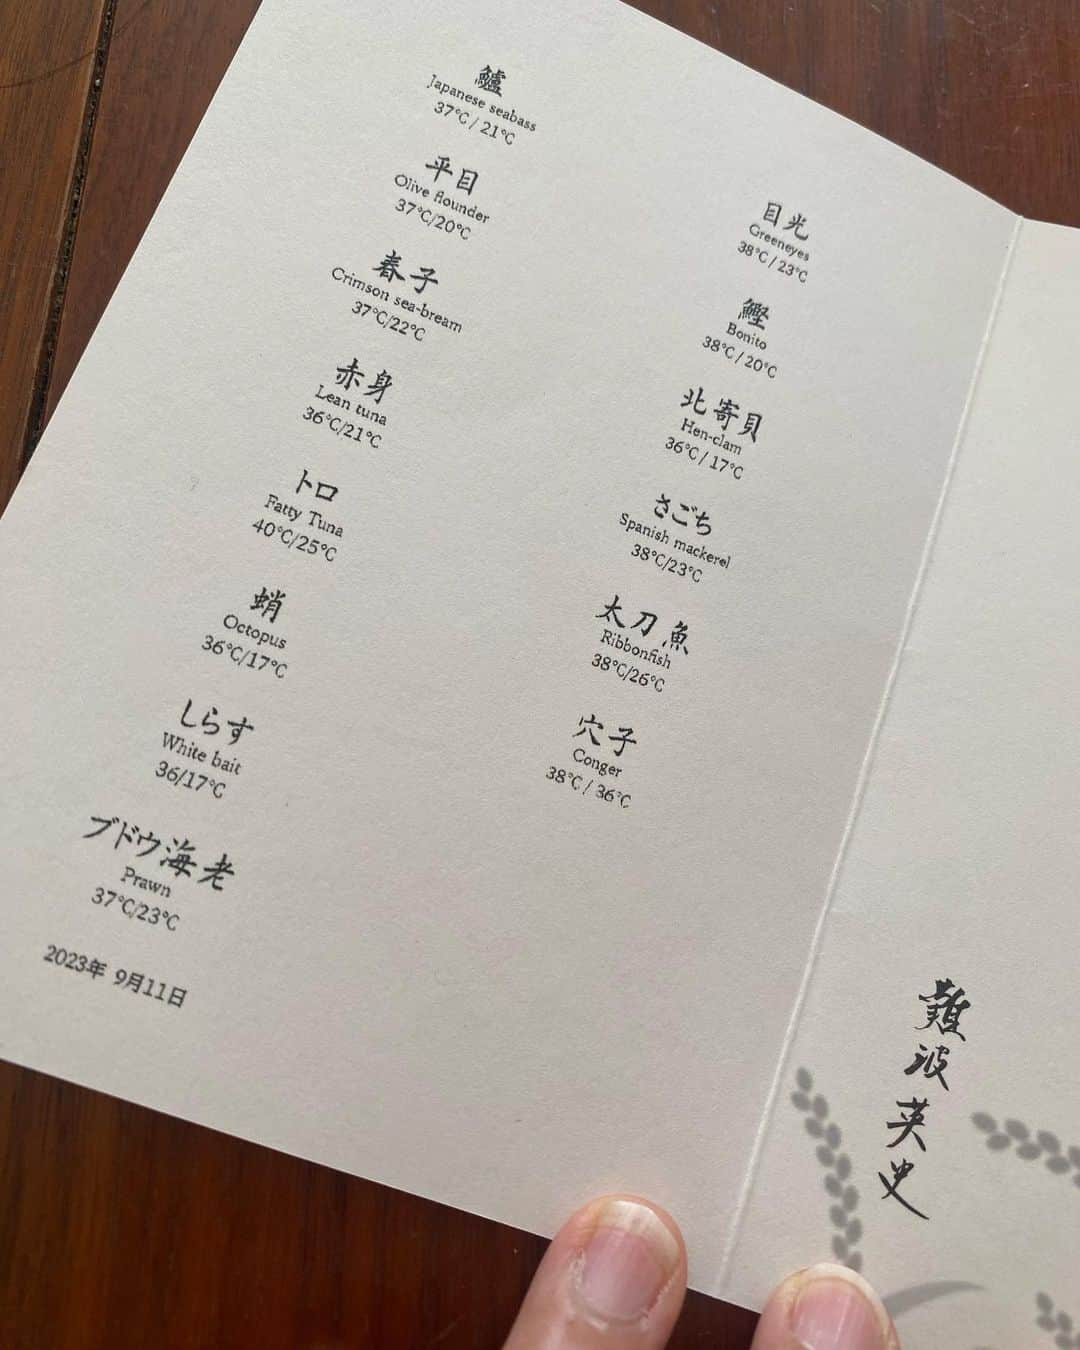 鱸
Japanese seabass
37℃ / 21℃
平目
Olive flounder
37℃/20℃
春子
Crimson sea-bream
37℃/22℃
赤身
Lean tuna
36℃/21℃
トロ
Fatty Tuna
40℃/25℃
蛸
Octopus
36℃/17℃
しらす
White bait
36/17℃
ブドウ海老
Prawn
37℃/23℃
2023年 9月11日
目光
Greeneyes
38℃ / 23℃
鰹
Bonito
38℃ / 20℃
北寄貝
Hen-clam
36℃ / 17℃
さごち
Spanish mackerel
38℃/23℃
太刀魚
Ribbonfish
38℃/26℃
穴子
Conger
38℃ / 36℃
難波英史